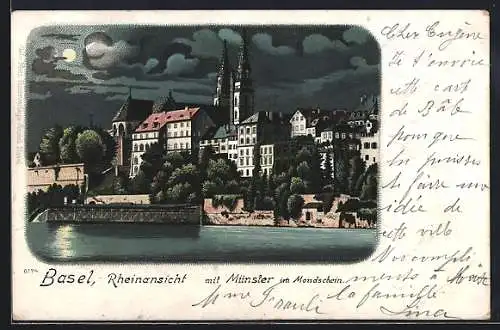 Cher Eugène
Je t'envoie
cette cart
de Bâle
pour que
tu puisses
te faire une
idée de
cette ville
Nos compli
ments à
la famille
Lina
6174
Basel, Rheinansicht mit Münster im Mondschein.